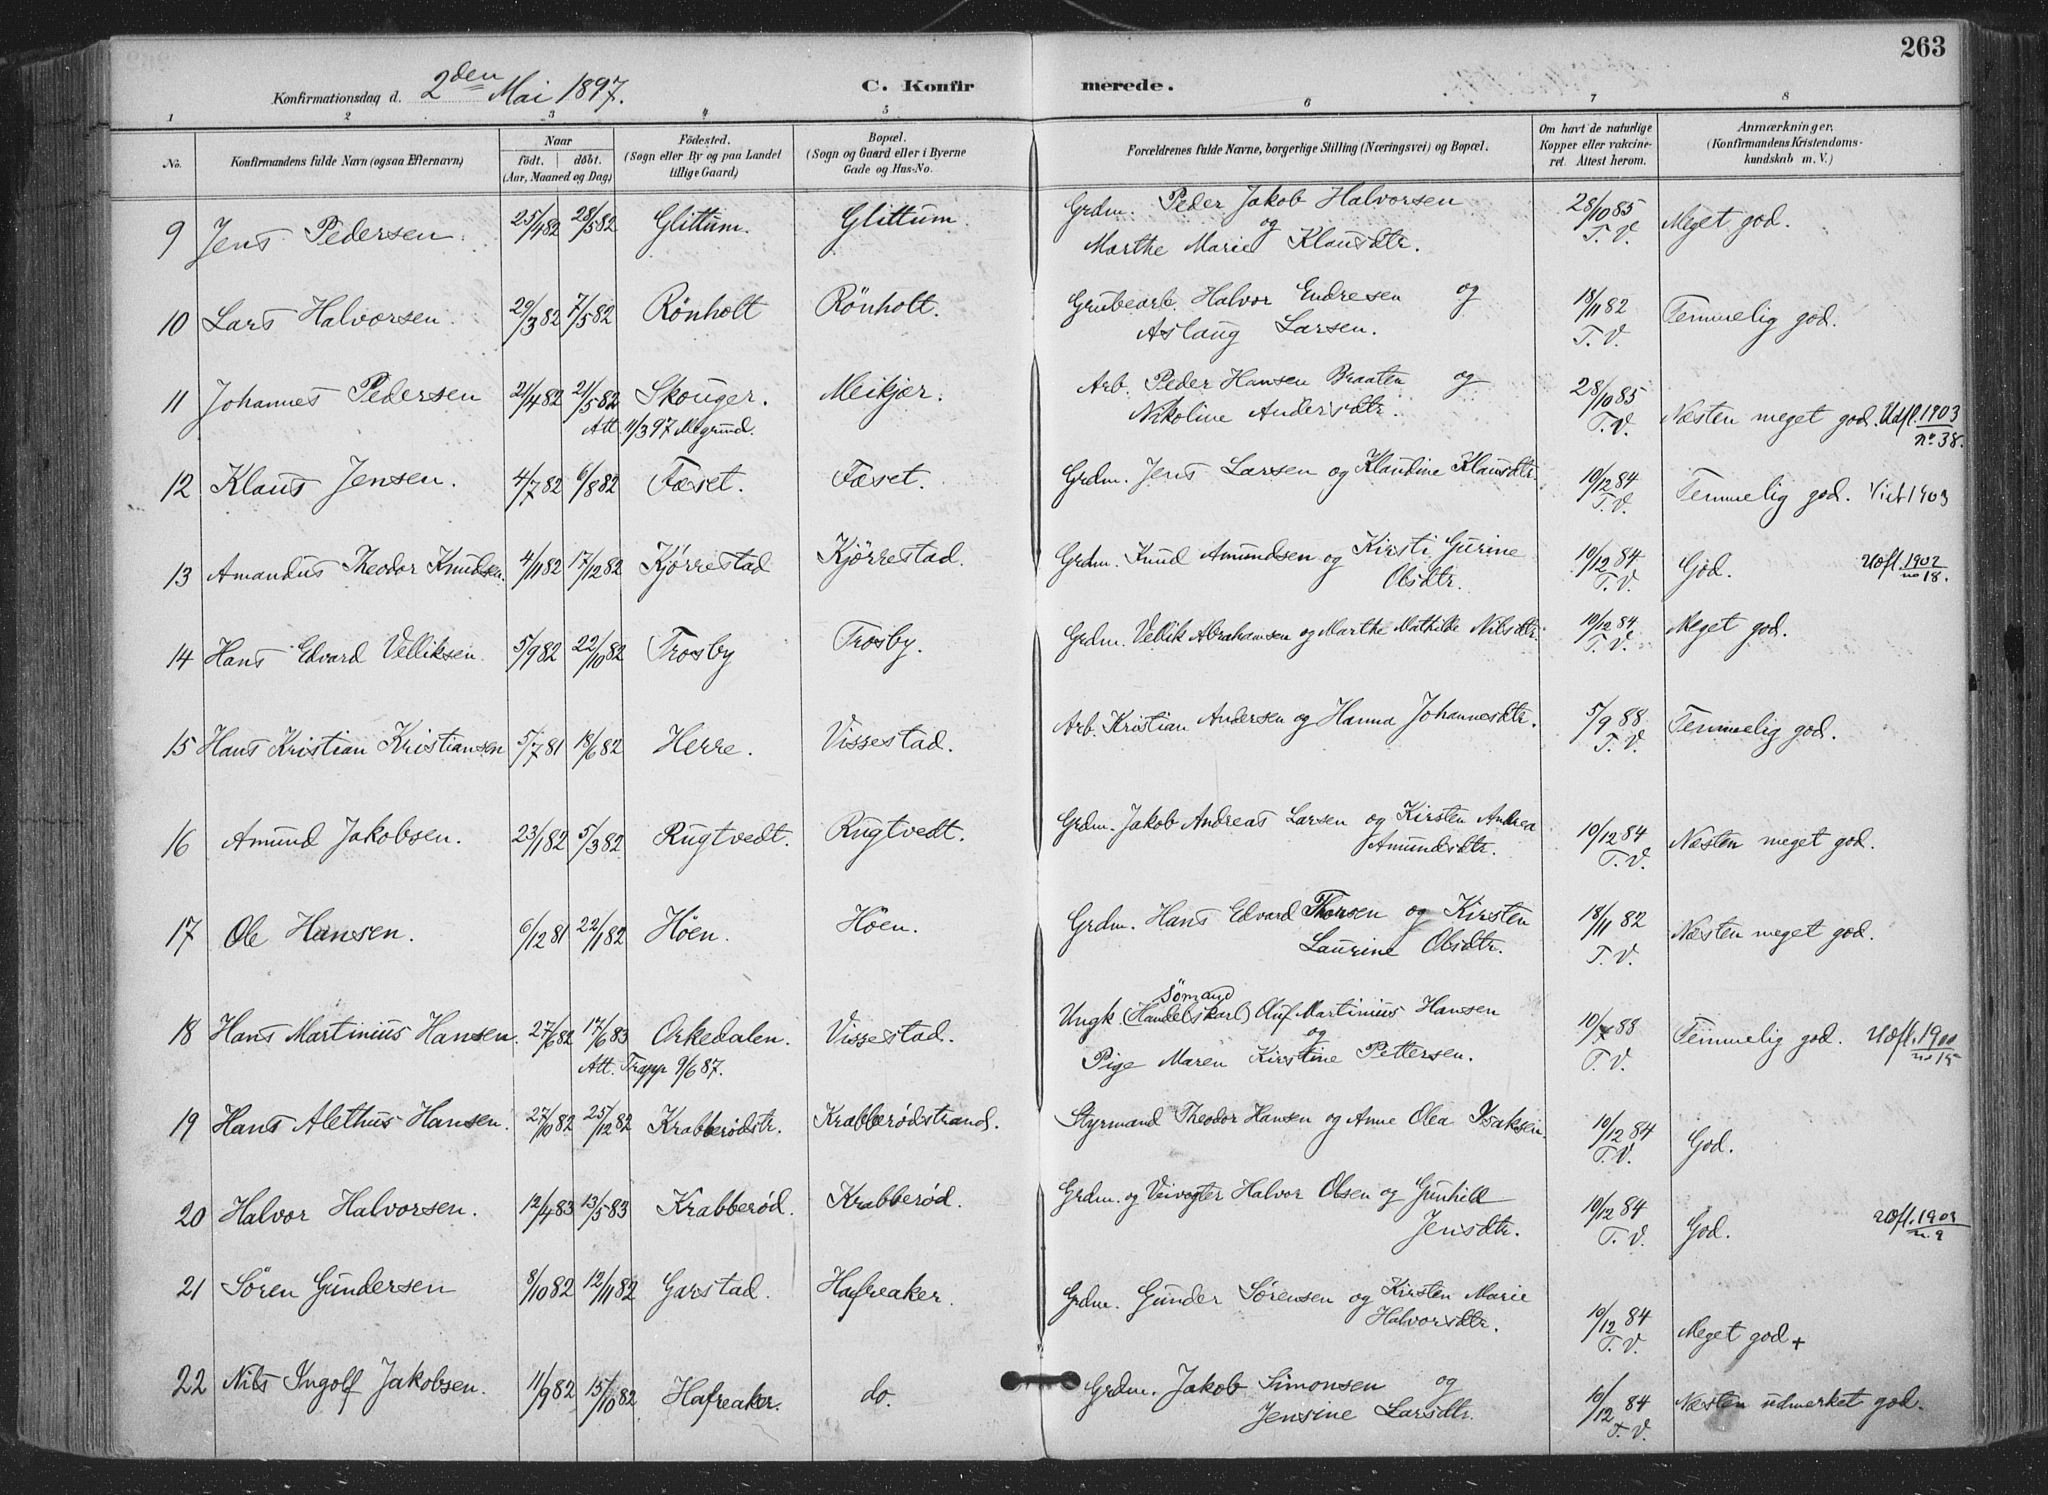 263
Konfirmationsdag d. 2den Mai 1897. C. Konfirmerede.
1 2 3 4 5 6 7 8
No. Konfirmandens fulde Navn (ogsaa Efternavn) Naar født. døbt. (Aar, Maaned og Dag) Födested. (Sogn eller By og paa Landet tillige Gaard) Bopæl. (Sogn og Gaard eller i Byerne Gade og Hus-No. Forældrenes fulde Navne, borgerlige Stilling (Næringsvei) og Bopæl. Om havt de naturlige Kopper eller vakcineret. Attest herom. Anmærkninger. (Konfirmandens Kristendomskundskab m. V.)
9 Jens Pedersen. 25/4 82 28/5 82 Glittum. Glittum. Grdm. Peder Jakob Halvorsen 28/10 85 Meget god.
og
Marthe Marie Klausdtr. T. V.
10 Lars Halvorsen. 29/3 82 7/5 82 Rönholt Rönholt. Grubearb. Halvor Endresen og 18/11 82 Temmelig god.
Aslaug Larsen. T. V.
11 Johannes Pedersen 21/4 82 21/5 82 Skouger. Meikjær. Arb. Peder Hansen Braaten og 28/10 85
Att. 11/3 97 Nikoline Andersdtr. T. V. Næsten meget god. Udfl. 1903 no 38.
12 Klaus Jensen. 4/7 82 6/8 82 Fæset. Fæset. Grdm. Jens Larsen og Klaudine Klausdtr. 10/12 84 T. V. Temmelig god. Viet 1903
13 Amandus Theodor Knudsen. 4/11 82 17/12 82 Kjörrestad Kjörrestad. Grdm. Knud Amundsen og Kirsti Gurine 10/12 84 God. Udfl. 1902 no 18.
Olsdtr. T. V.
14 Hans Edvard Velliksen. 5/9 82 22/10 82 Trosby Trosby. Grdm. Vellik Abrahamsen og Marthe Mathilde Nilsdtr. 10/12 84 T. V. Meget god.
15 Hans Kristian Kristiansen 5/7 81 18/6 82 Herre. Vissestad. Arb. Kristian Andersen og Hanna Johannesdtr. 5/9 88 T. V. Temmelig god.
16 Amund Jakobsen. 23/1 82 5/3 82 Rugtvedt. Rugtvedt. Grdm. Jakob Andreas Larsen og Kirsten Andrea 10/12 84 Næsten meget god.
Amundsdtr. T. V.
17 Ole Hansen. 6/12 81 22/1 82 Höen. Höen. Grdm. Hans Edvard Thorsen og Kirsten 18/11 82 Næsten meget god.
Laurine Olsdtr. T. V.
sömand
18 Hans Martinius Hansen. 27/6 82 17/6 83 Orkedalen. Vissestad. Ungk. (Handelskarl) Oluf Martinius Hansen 10/7 88 Temmelig god. Udfl. 1900 no 15
og
Att. Trapp 9/6 87. Pige Maren Kirstine Pettersen. T. V.
19 Hans Alethus Hansen. 27/10 82 25/12 82 Krabberödstr. Krabberödstrand. Styrmand Theodor Hansen og Anne Olea Isaksen. 10/12 84 T. V. God.
20 Halvor Halvorsen. 12/4 83 13/5 83 Krabberöd. Krabberöd. Grdm. og Veivogter Halvor Olsen og Gunhild 10/12 84 God. Udfl. 1903 n. 9
Jensdtr. T. V.
21 Sören Gundersen 8/10 82 12/11 82 Garstad. Hafreaker. Grdm. Gunder Sörensen og Kirsten Marie 10/12 84 Meget god +
Halvorsdtr. T. V.
22 Nils Ingolf Jakobsen. 11/9 82 15/10 82 Hafreaker. do. Grdm. Jakob Simonsen og 10/12 84 Næsten udmerket god.
Jensine Larsdtr. T. V.